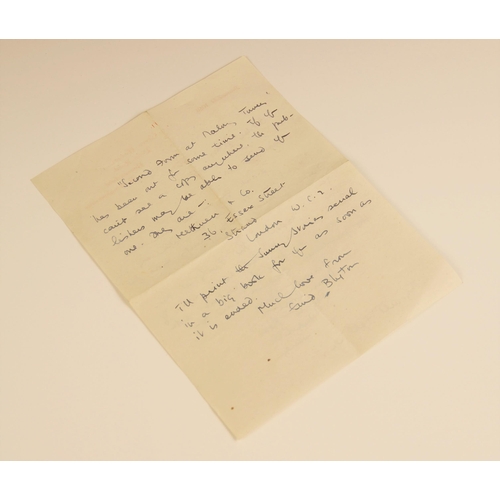 "Second Form at Malory Towers"
has been out for some time. If you
can't get a copy anywhere the pub-
lishers may be able to send you
one. They are:-
Methuen & Co.
36. Essex Street
Strand
London W.C.2.
I'll print the Sunny Stories serial
in a big book for you as soon as
it is ended. Much love from
Enid Blyton